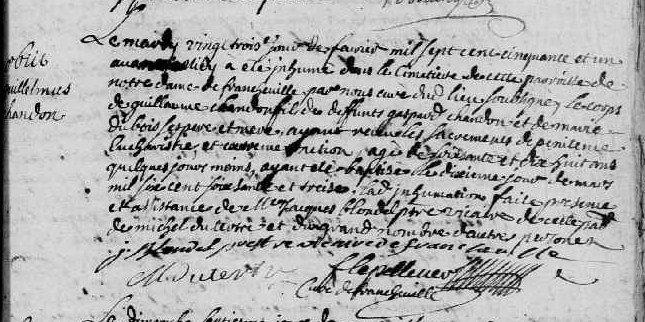 obiit
guillelmus
chandon
Le mardy vingt trois jour de fevrier mil sept cent cinquante et un
avant midy a ete inhumé dans le cimetiere de cette paroisse de
notre dame de francheville par nous curé dud lieu soubsigné le corps
de guillaume chandon fils des deffunts gaspard chandon et de marie
du bois ses pere et mere, ayant receu les sacrements de penitence
Eucharistie et extreme onction, agé de soixante et dix huit ans
quelques jours moins, ayant ete baptisé le dixieme jour de mars
mil six cent soixante et treize, lad inhumation faite presence
et assistance de Jacques blondel ptre vicaire de cette
de michel du tertre et du grand nombre d'autres personnes
j. blondel prestre vicaire de francheville
M Du tertre
F lepelleur
Curé de francheville